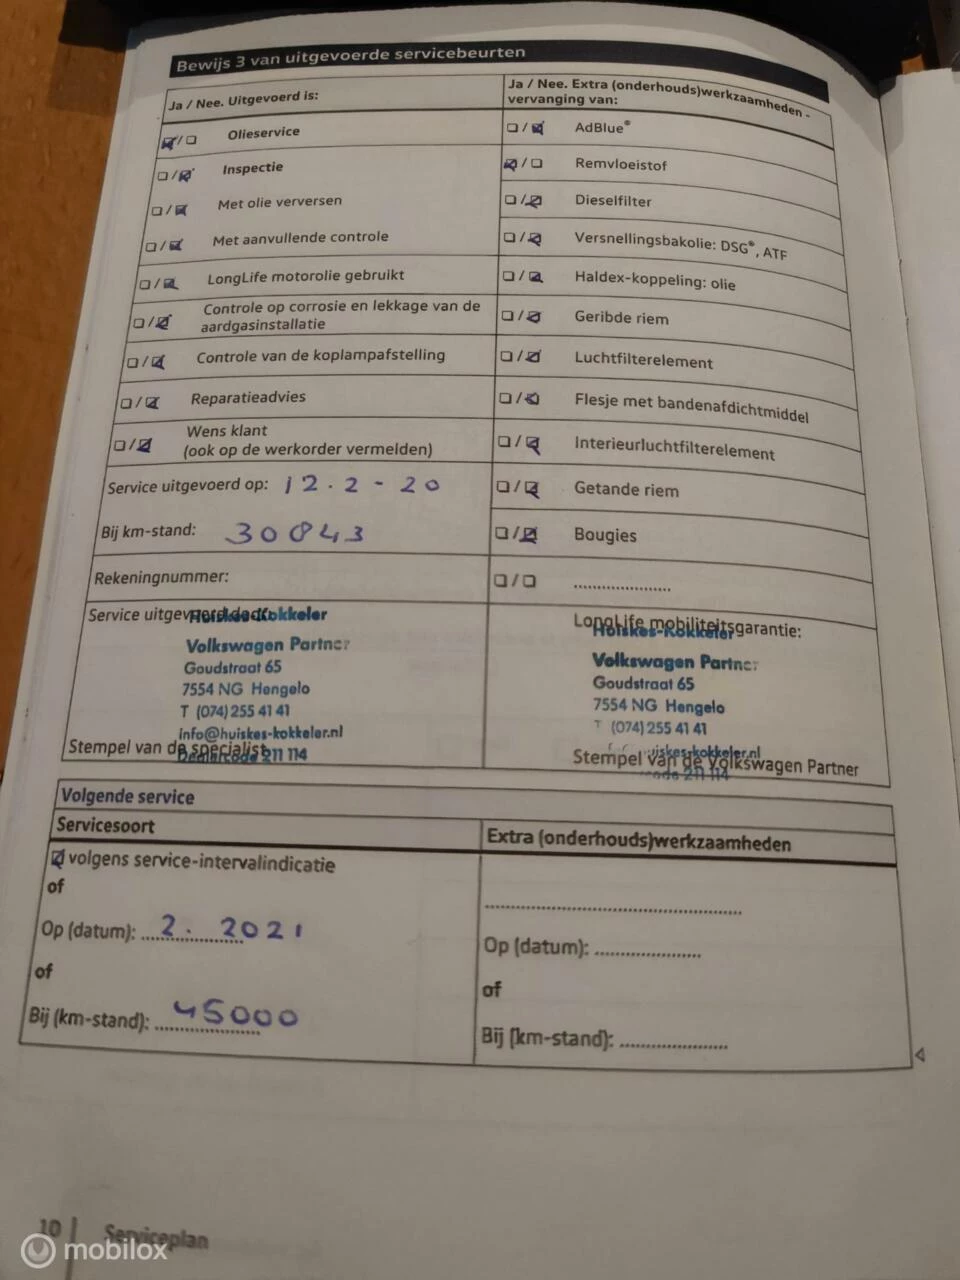 Bewijs 3 van uitgevoerde servicebeurten
Ja / Nee. Uitgevoerd is:
☑/☐ Olieservice
☐/☑ Inspectie
☐/☑ Met olie verversen
☐/☑ Met aanvullende controle
☐/☑ LongLife motorolie gebruikt
☐/☑ Controle op corrosie en lekkage van de
aardgasinstallatie
☐/☑ Controle van de koplampafstelling
☐/☑ Reparatieadvies
☐/☑ Wens klant
(ook op de werkorder vermelden)
Service uitgevoerd op: 12.2-20
Bij km-stand: 30843
Rekeningnummer:
Service uitgevoerd door:
Huiskes-Kokkeler
Volkswagen Partner
Goudstraat 65
7554 NG Hengelo
T (074) 255 41 41
info@huiskes-kokkeler.nl
Dealercode 211 114
Stempel van de specialist
Ja / Nee. Extra (onderhouds)werkzaamheden -
vervanging van:
☐/☑ AdBlue®
☑/☐ Remvloeistof
☐/☑ Dieselfilter
☐/☑ Versnellingsbakolie: DSG®, ATF
☐/☑ Haldex-koppeling: olie
☐/☑ Geribde riem
☐/☑ Luchtfilterelement
☐/☑ Flesje met bandenafdichtmiddel
☐/☑ Interieurluchtfilterelement
☐/☑ Getande riem
☐/☑ Bougies
☐/☐ ......................
LongLife mobiliteitsgarantie:
Huiskes-Kokkeler
Volkswagen Partner
Goudstraat 65
7554 NG Hengelo
T (074) 255 41 41
huiskes-kokkeler.nl
code 211 114
Stempel van de Volkswagen Partner
Volgende service
Servicesoort
☑ volgens service-intervalindicatie
of
Op (datum): 2. 2021
of
Bij (km-stand): 45000
Extra (onderhouds)werkzaamheden
Op (datum): ......................
of
Bij (km-stand): ......................
10 | Serviceplan
mobilox